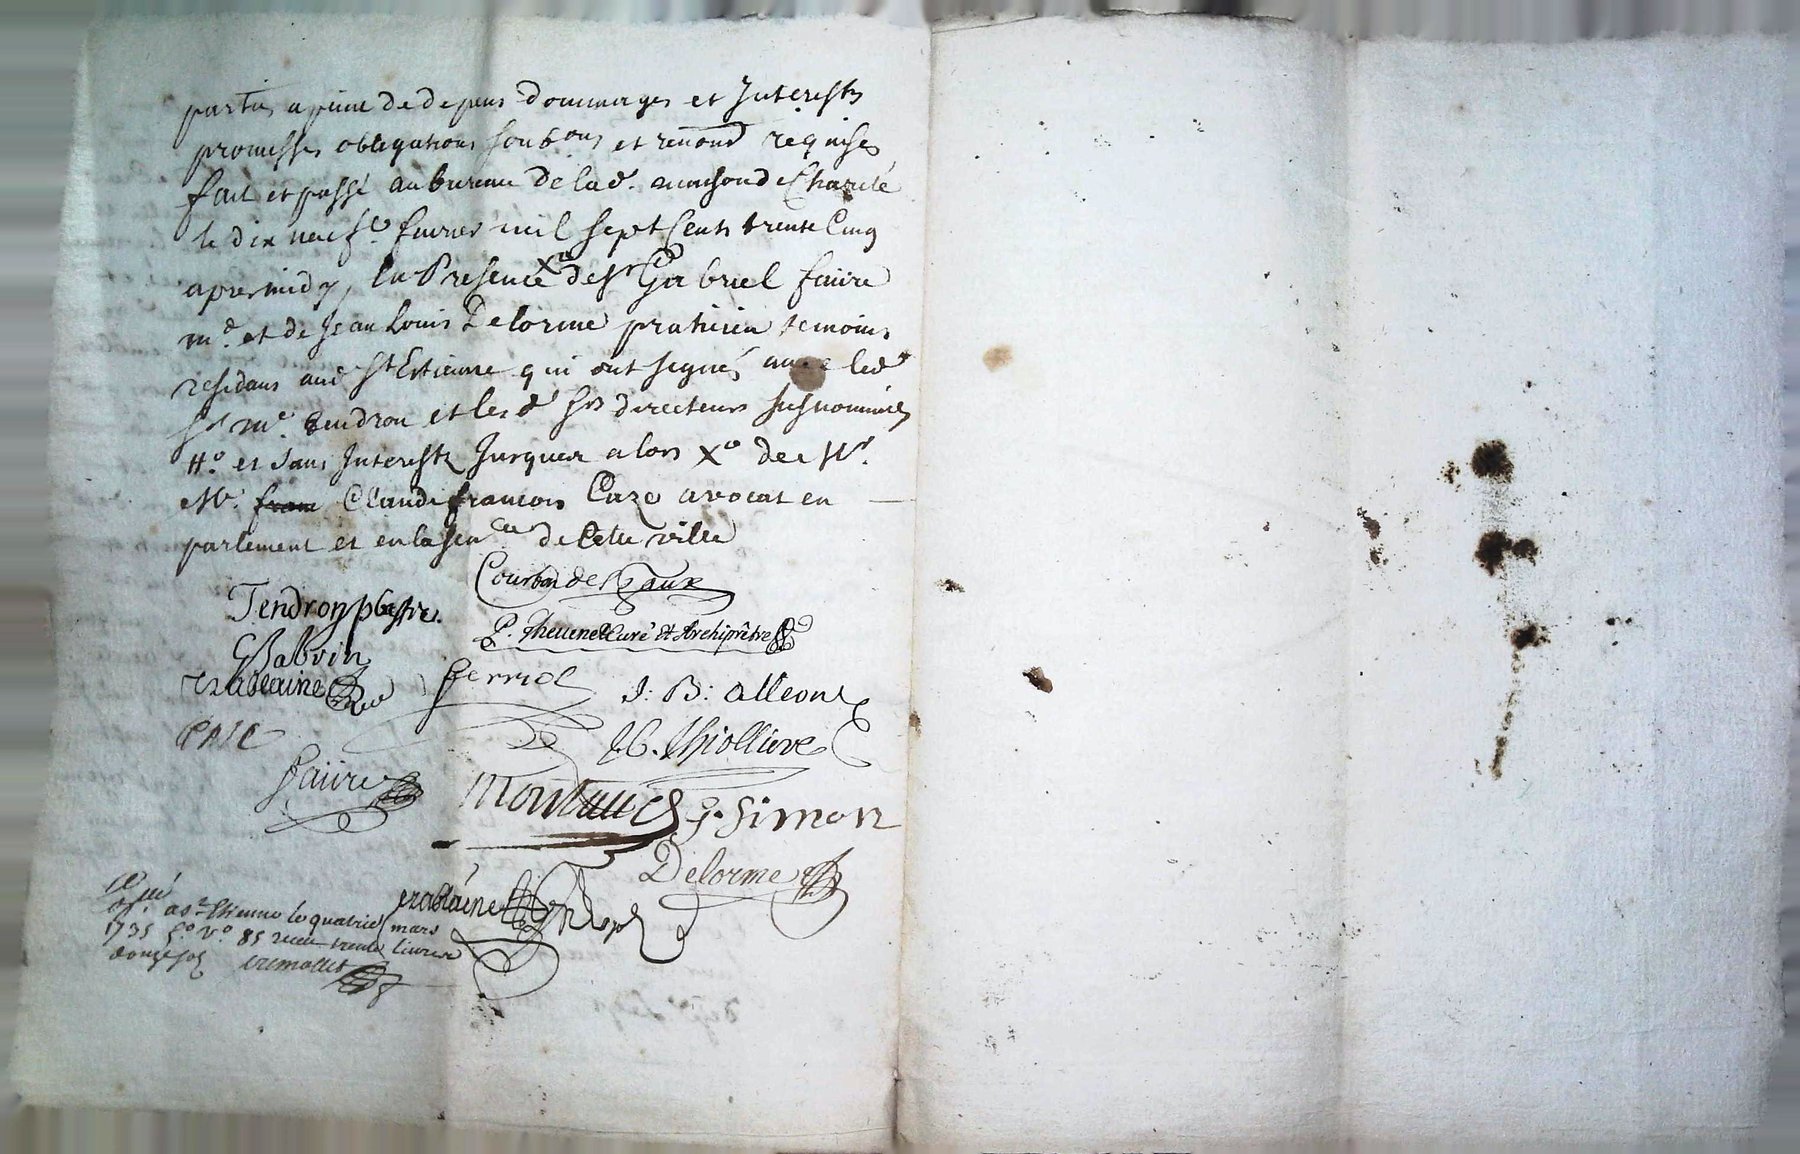 parties a peine de depens dommages et Interests
promesses obligations soubons et renond requises
fait et passé au bureau de lad. maison de Charité
le dix neufe. fuvrier mil sept Cents trente Cinq
apres midy, En Presence Xo de Sr Gabriel faure
md. et de Jean Louis Delorme praticien temoins
residans aud St Estienne qui ont signés avec led
Sr me. Tendron et les d. Srs directeurs susnommés
#o et sans Interests Jusques a lors Xo de Mr.
Me. Claude francois Caze avocat en
parlement et en la senee de Cette ville
Courbon des Gaux
Tendron pbre
P. Thevenet Curé et Archiprêtre
Babvin
Ferriol
J: B: alleon
CAZE
J.C. Thiolliere
faure
Montaud
J. Simon
Delorme
erablaine
a St. Etienne le quatrie mars
1735 fo. Vo. 85 receu trente livres
douze sols